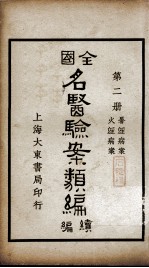 第二册
暑淫病案
火淫病案
全國
名醫驗案類編
續編
上海大東書局印行